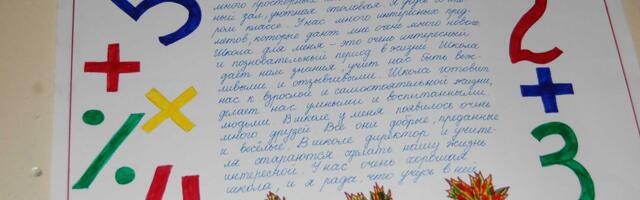 много просторных
ный зал, уютная столовая. Я
ром классе. У нас много интересных пред-
метов, которые дают мне очень много нового.
Школа для меня - это очень интересный
и познавательный период в жизни. Школа
даёт нам знания, учит нас быть веж-
ливыми и отзывчивыми. Школа готовит
нас к взрослой и самостоятельной жизни,
делает нас умными и воспитанными
людьми. В школе у меня появилось очень
много друзей. Все они добрые, преданные
и весёлые. В школе директор и учите-
ля стараются сделать нашу жизнь
интересной. У нас очень хорошая
школа, и я рада, что учусь в ней.
5
+
×
%
4
2
+
3